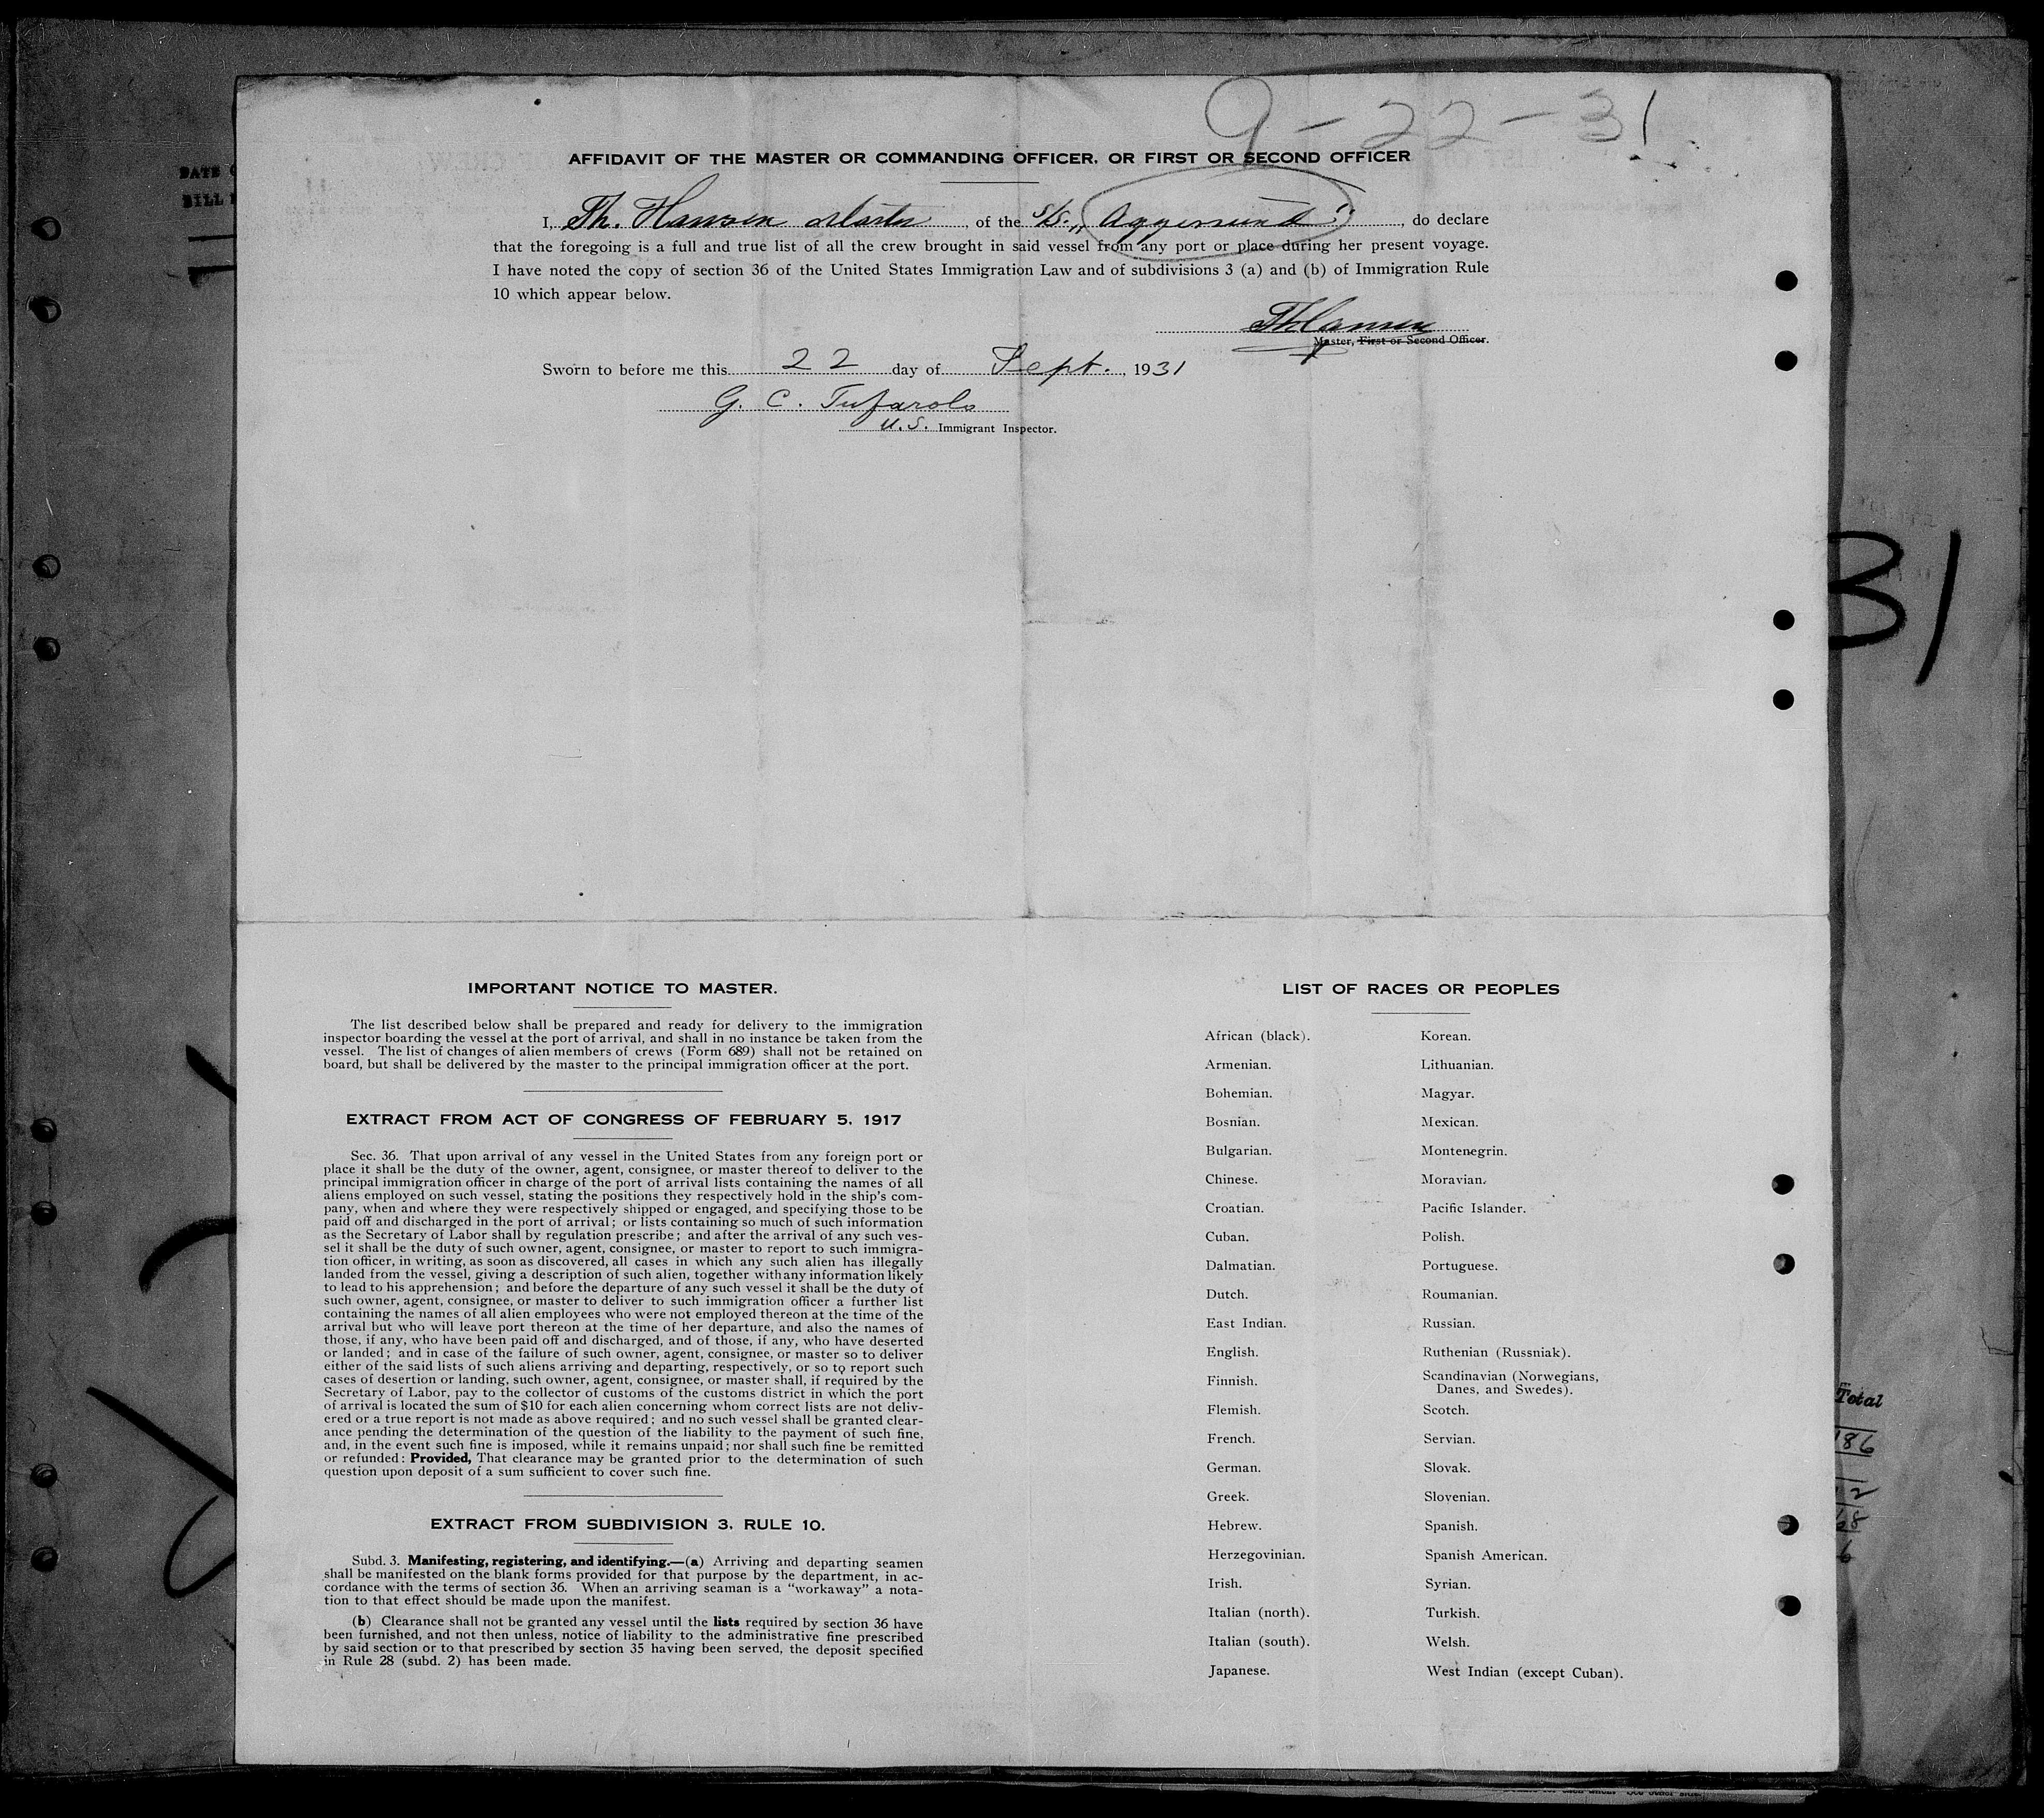 9-22-31
AFFIDAVIT OF THE MASTER OR COMMANDING OFFICER, OR FIRST OR SECOND OFFICER
I, Th. Hansen Master, of the S/S. „Aggersund", do declare
that the foregoing is a full and true list of all the crew brought in said vessel from any port or place during her present voyage.
I have noted the copy of section 36 of the United States Immigration Law and of subdivisions 3 (a) and (b) of Immigration Rule
10 which appear below.
ThHansen
Master, First or Second Officer.
Sworn to before me this 22 day of Sept., 1931
G. C. Tufarolo
U.S. Immigrant Inspector.
DATE
BILL
31
IMPORTANT NOTICE TO MASTER.
The list described below shall be prepared and ready for delivery to the immigration
inspector boarding the vessel at the port of arrival, and shall in no instance be taken from the
vessel. The list of changes of alien members of crews (Form 689) shall not be retained on
board, but shall be delivered by the master to the principal immigration officer at the port.
EXTRACT FROM ACT OF CONGRESS OF FEBRUARY 5, 1917
Sec. 36. That upon arrival of any vessel in the United States from any foreign port or
place it shall be the duty of the owner, agent, consignee, or master thereof to deliver to the
principal immigration officer in charge of the port of arrival lists containing the names of all
aliens employed on such vessel, stating the positions they respectively hold in the ship's com-
pany, when and where they were respectively shipped or engaged, and specifying those to be
paid off and discharged in the port of arrival; or lists containing so much of such information
as the Secretary of Labor shall by regulation prescribe; and after the arrival of any such ves-
sel it shall be the duty of such owner, agent, consignee, or master to report to such immigra-
tion officer, in writing, as soon as discovered, all cases in which any such alien has illegally
landed from the vessel, giving a description of such alien, together with any information likely
to lead to his apprehension; and before the departure of any such vessel it shall be the duty of
such owner, agent, consignee, or master to deliver to such immigration officer a further list
containing the names of all alien employees who were not employed thereon at the time of the
arrival but who will leave port thereon at the time of her departure, and also the names of
those, if any, who have been paid off and discharged, and of those, if any, who have deserted
or landed; and in case of the failure of such owner, agent, consignee, or master so to deliver
either of the said lists of such aliens arriving and departing, respectively, or so to report such
cases of desertion or landing, such owner, agent, consignee, or master shall, if required by the
Secretary of Labor, pay to the collector of customs of the customs district in which the port
of arrival is located the sum of $10 for each alien concerning whom correct lists are not deliv-
ered or a true report is not made as above required; and no such vessel shall be granted clear-
ance pending the determination of the question of the liability to the payment of such fine,
and, in the event such fine is imposed, while it remains unpaid; nor shall such fine be remitted
or refunded: Provided, That clearance may be granted prior to the determination of such
question upon deposit of a sum sufficient to cover such fine.
EXTRACT FROM SUBDIVISION 3, RULE 10.
Subd. 3. Manifesting, registering, and identifying.—(a) Arriving and departing seamen
shall be manifested on the blank forms provided for that purpose by the department, in ac-
cordance with the terms of section 36. When an arriving seaman is a "workaway" a nota-
tion to that effect should be made upon the manifest.
(b) Clearance shall not be granted any vessel until the lists required by section 36 have
been furnished, and not then unless, notice of liability to the administrative fine prescribed
by said section or to that prescribed by section 35 having been served, the deposit specified
in Rule 28 (subd. 2) has been made.
LIST OF RACES OR PEOPLES
African (black).
Armenian.
Bohemian.
Bosnian.
Bulgarian.
Chinese.
Croatian.
Cuban.
Dalmatian.
Dutch.
East Indian.
English.
Finnish.
Flemish.
French.
German.
Greek.
Hebrew.
Herzegovinian.
Irish.
Italian (north).
Italian (south).
Japanese.
Korean.
Lithuanian.
Magyar.
Mexican.
Montenegrin.
Moravian.
Pacific Islander.
Polish.
Portuguese.
Roumanian.
Russian.
Ruthenian (Russniak).
Scandinavian (Norwegians,
Danes, and Swedes).
Scotch.
Servian.
Slovak.
Slovenian.
Spanish.
Spanish American.
Syrian.
Turkish.
Welsh.
West Indian (except Cuban).
Total
186